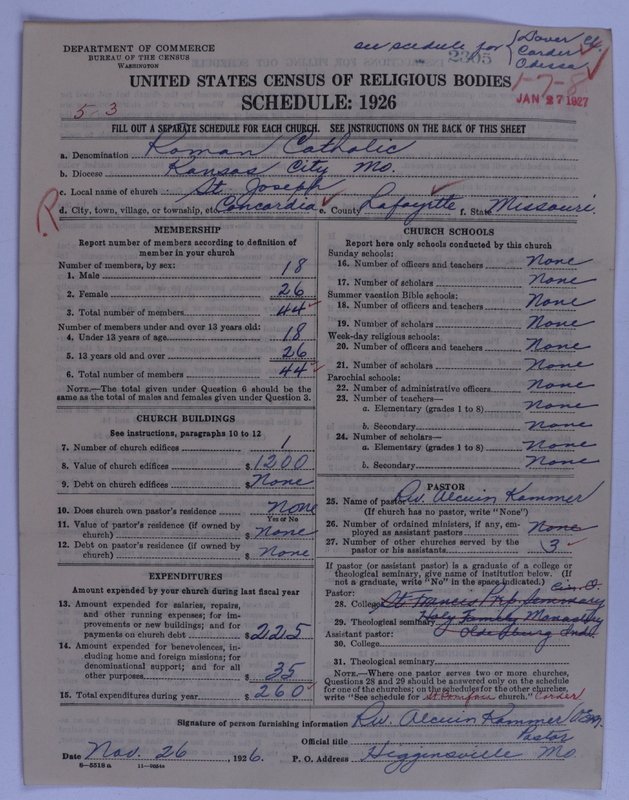 DEPARTMENT OF COMMERCE
BUREAU OF THE CENSUS
WASHINGTON
see schedule for { Dover
Corder
Odessa
2305
1-7-8
UNITED STATES CENSUS OF RELIGIOUS BODIES
SCHEDULE: 1926
JAN 27 1927
5-3
FILL OUT A SEPARATE SCHEDULE FOR EACH CHURCH. SEE INSTRUCTIONS ON THE BACK OF THIS SHEET
a. Denomination Roman Catholic
b. Diocese Kansas City Mo.
c. Local name of church St. Joseph
d. City, town, village, or township, etc. Concordia e. County Lafayette f. State Missouri.
R
MEMBERSHIP
Report number of members according to definition of
member in your church
Number of members, by sex:
1. Male 18
2. Female 26
3. Total number of members 44
Number of members under and over 13 years old:
4. Under 13 years of age 18
5. 13 years old and over 26
6. Total number of members 44
NOTE.—The total given under Question 6 should be the
same as the total of males and females given under Question 3.
CHURCH BUILDINGS
See instructions, paragraphs 10 to 12
7. Number of church edifices 1
8. Value of church edifices $1200
9. Debt on church edifices $None
10. Does church own pastor's residence none
Yes or No
11. Value of pastor's residence (if owned by
church) $ None
12. Debt on pastor's residence (if owned by
church) $ None
EXPENDITURES
Amount expended by your church during last fiscal year
13. Amount expended for salaries, repairs,
and other running expenses; for im-
provements or new buildings; and for
payments on church debt $225
14. Amount expended for benevolences, in-
cluding home and foreign missions; for
denominational support; and for all
other purposes $ 35
15. Total expenditures during year $260
CHURCH SCHOOLS
Report here only schools conducted by this church
Sunday schools:
16. Number of officers and teachers None
17. Number of scholars None
Summer vacation Bible schools:
18. Number of officers and teachers None
19. Number of scholars None
Week-day religious schools:
20. Number of officers and teachers None
21. Number of scholars None
Parochial schools:
22. Number of administrative officers None
23. Number of teachers—
a. Elementary (grades 1 to 8) None
b. Secondary None
24. Number of scholars—
a. Elementary (grades 1 to 8) None
b. Secondary None
PASTOR
25. Name of pastor Rev. Alcuin Kammer
(If church has no pastor, write "None")
26. Number of ordained ministers, if any, em-
ployed as assistant pastors None
27. Number of other churches served by the
pastor or his assistants 3
If pastor (or assistant pastor) is a graduate of a college or
theological seminary, give name of institution below. (If
not a graduate, write "No" in the space indicated.)
Pastor: Cin. O.
28. College St Francis Prep. Seminary
29. Theological seminary Holy Family Monastery
Assistant pastor: Oldenburg Ind.
30. College
31. Theological seminary
NOTE.—Where one pastor serves two or more churches,
Questions 28 and 29 should be answered only on the schedule
for one of the churches; on the schedules for the other churches,
write "See schedule for St Boniface church." Corder
Signature of person furnishing information Rev. Alcuin Kammer O.F.M.
Official title Pastor
Date Nov. 26, 1926. P. O. Address Higginsville Mo.
8—5518a 11—9024